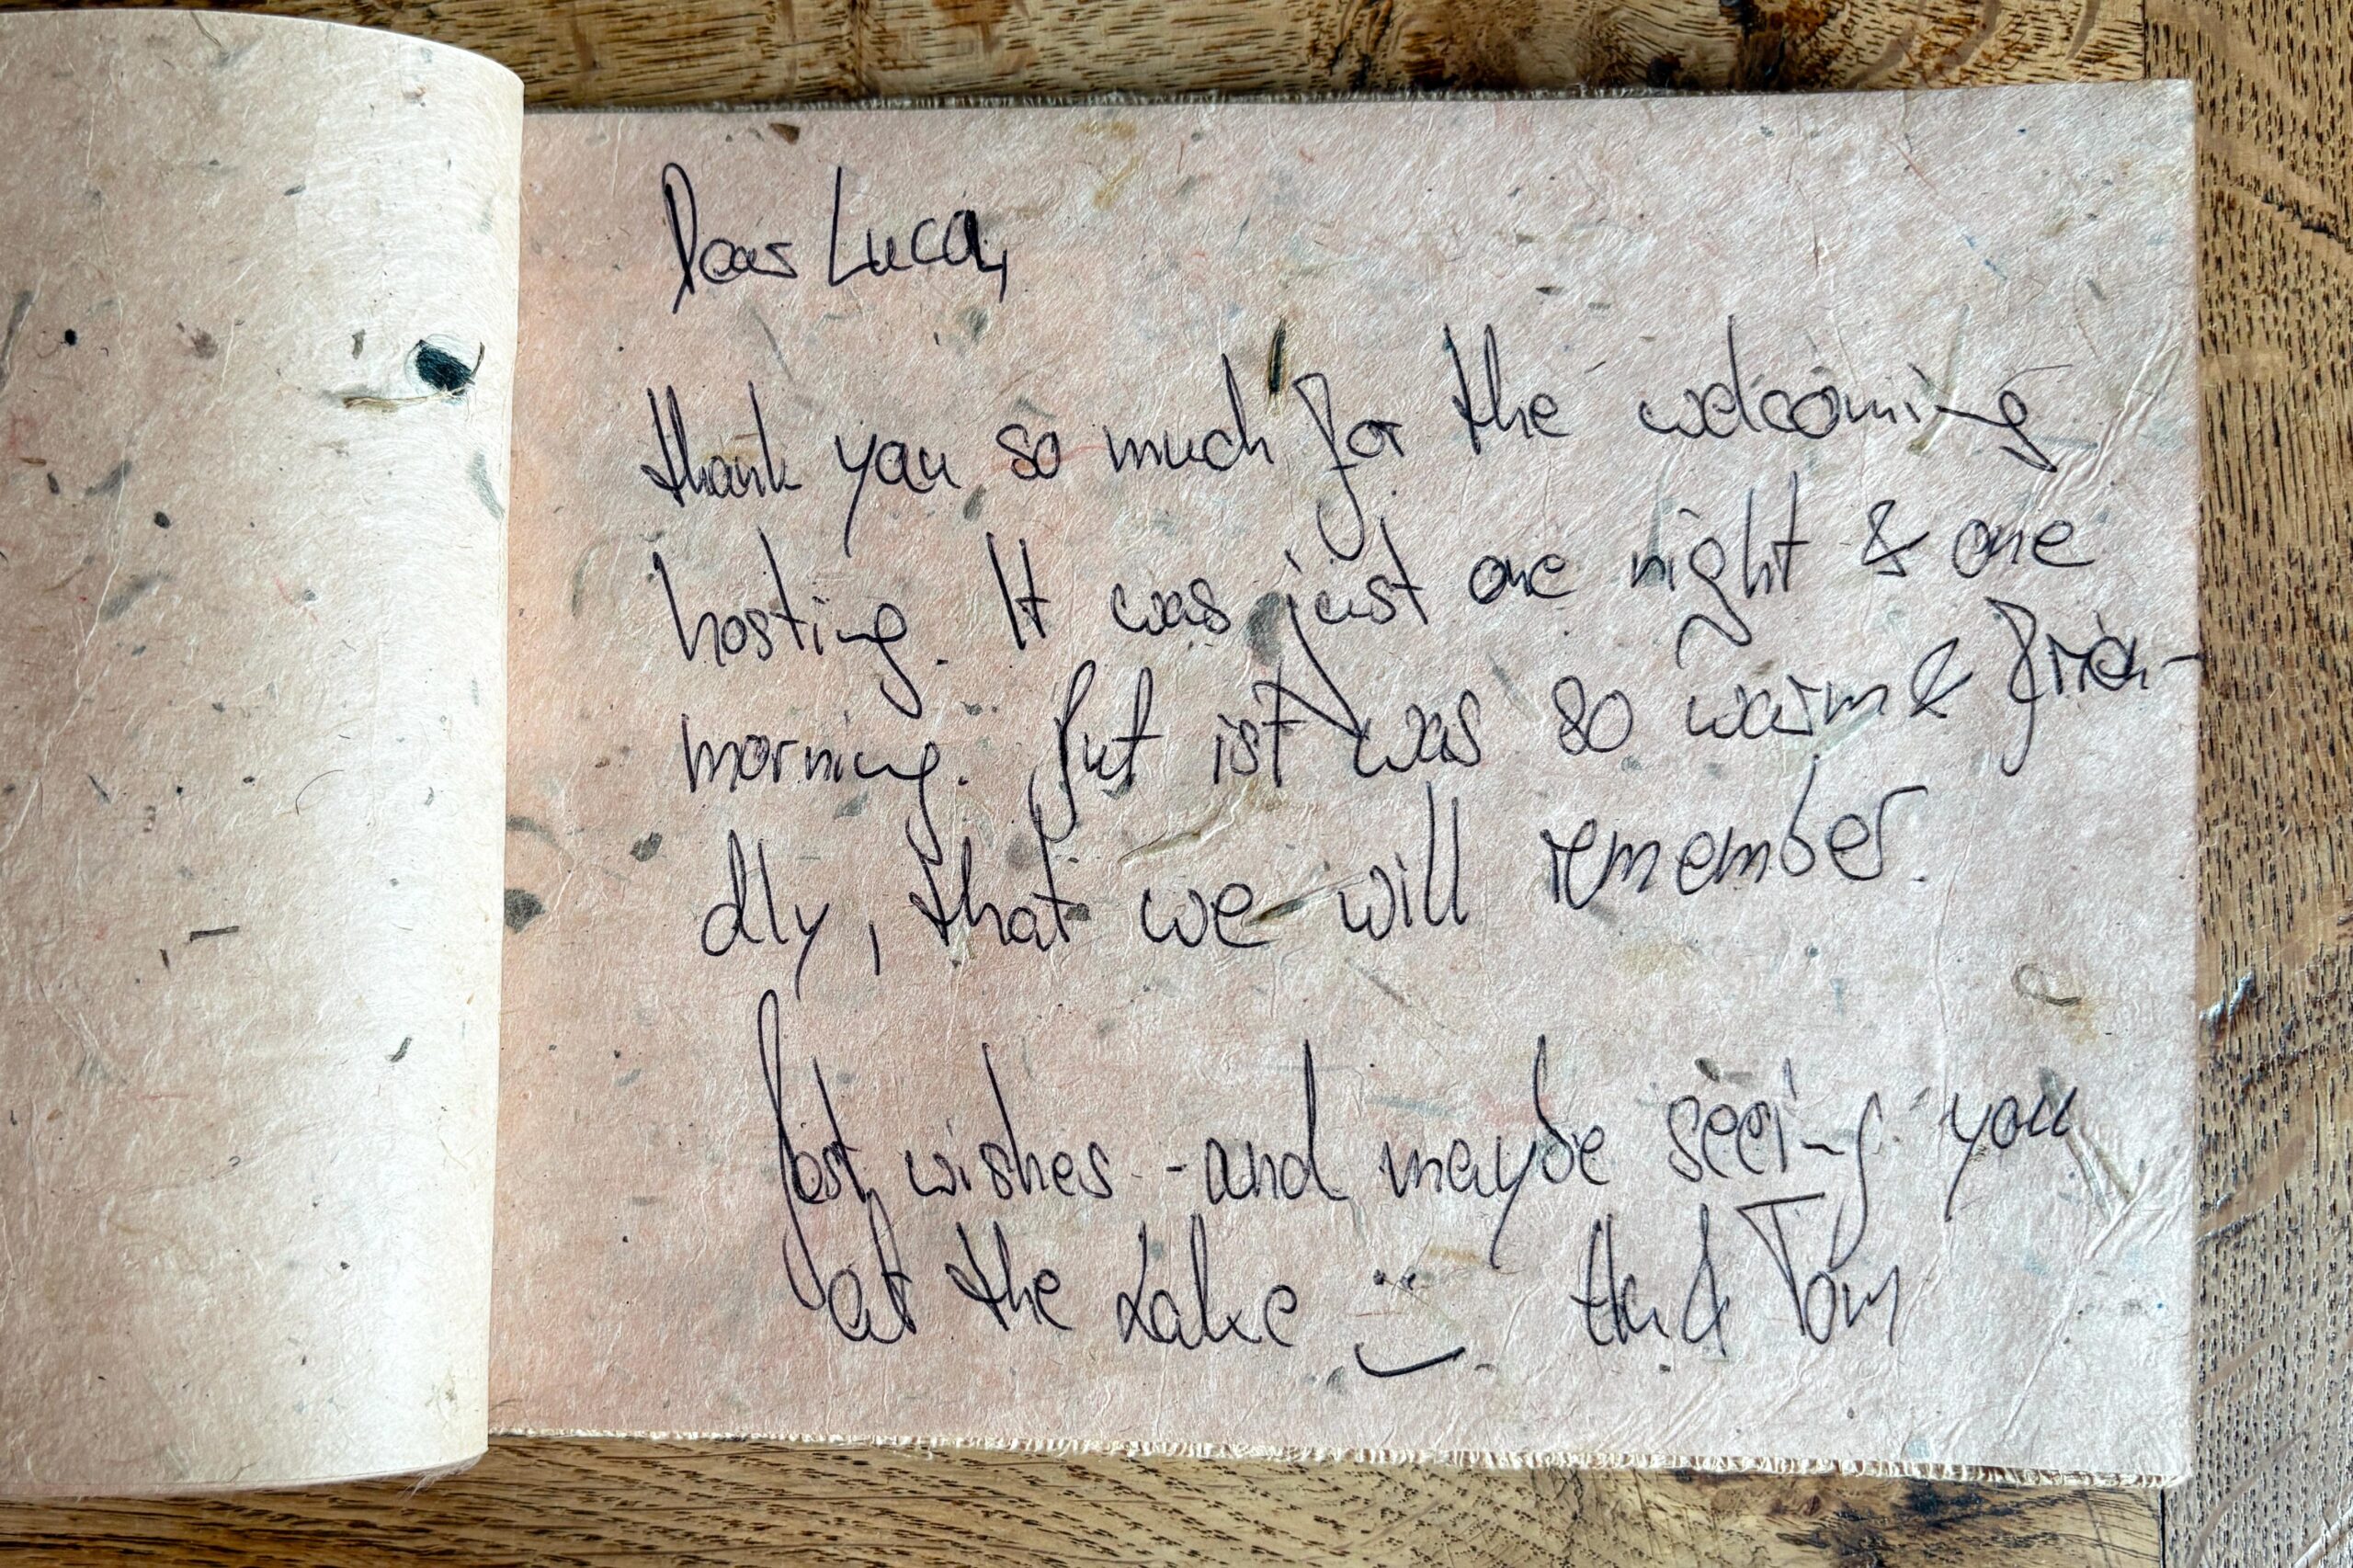 Dear Luca,
thank you so much for the welcoming
hosting. It was just one night & one
morning. But ist was so warm & frien-
dly, that we will remember.
Best wishes - and maybe seeing you
at the Lake :) & Tom